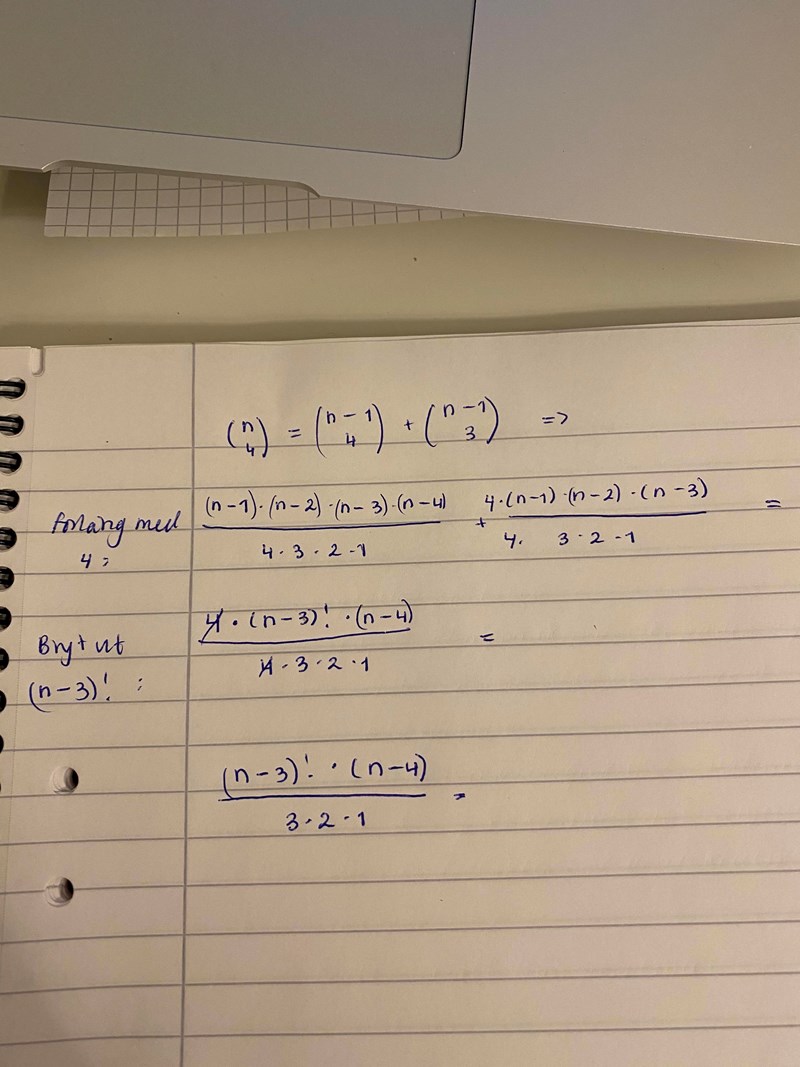 (n 4) = (n-1 4) + (n-1 3) =>
förläng med 4: (n-1)·(n-2)·(n-3)·(n-4) / 4·3·2·1 + 4·(n-1)·(n-2)·(n-3) / 4· 3·2·1 =
Bryt ut (n-3)! : 4·(n-3)!·(n-4) / 4·3·2·1 =
(n-3)! · (n-4) / 3·2·1 =